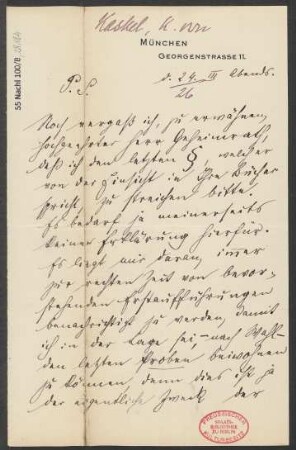 Kaskel, K. von
MÜNCHEN
GEORGENSTRASSE 11.
d. 24. III Abends.
26
P. S.
55 Nachl 100/B
Noch vergaß ich, zu erwähnen,
hochgeehrter Herr Geheimrath,
daß ich den letzten §, welcher
von der Einsicht in Ihre Bücher
spricht, zu streichen bitte.
Es bedarf ja meinerseits
keiner Erklärung hierfür.
Es liegt mir daran, immer
zur rechten Zeit von bevor-
stehenden Erstaufführungen
benachrichtigt zu werden, damit
ich in der Lage sei, nach Wahl
den letzten Proben beiwohnen
zu können, denn dies ist ja
der eigentliche Zweck der
PREUSSISCHER
STAATS-
BIBLIOTHEK
ZU BERLIN
KULTURBESITZ